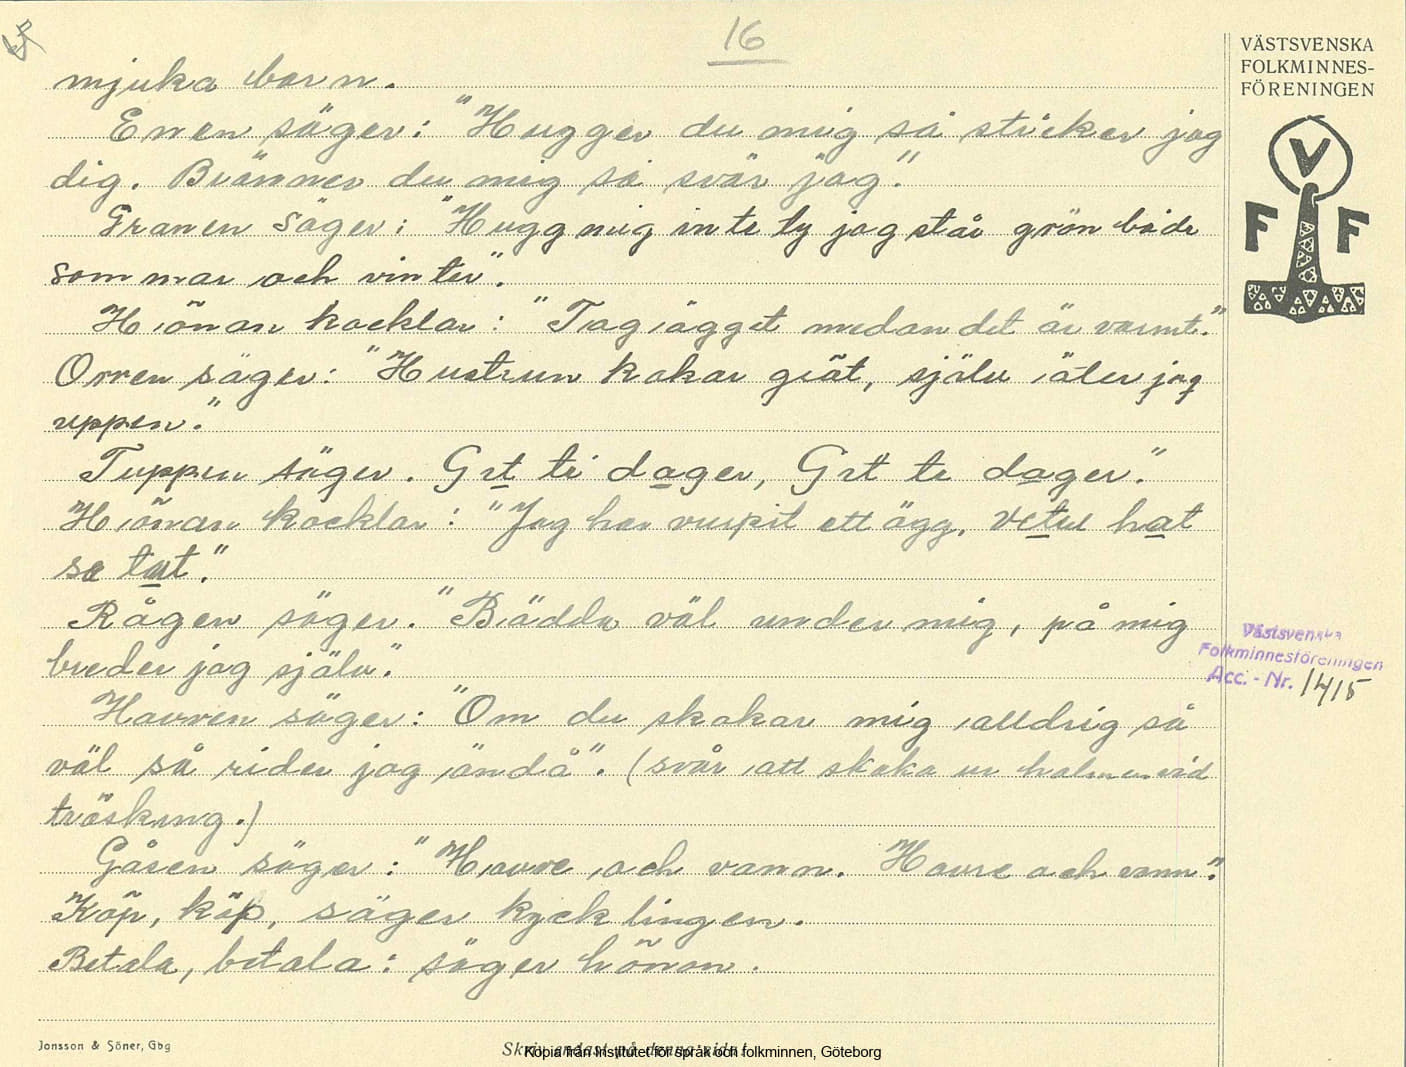 16
mjuka barn.
Enen säger: "Hugger du mig så sticker jag
dig. Bränner du mig så svär jag".
Granen säger: "Hugg mig inte ty jag står grön både
sommar och vinter".
Hönan kacklar: "Tag ägget medan det är varmt."
Orren säger: "Hustrun kokar gröt, själv äter jag
uppen."
Tuppen säger. Grt te dager, Grt te dager."
Hönan kacklar: "Jag har vurpit ett ägg, hat
se tatt."
Rågen säger. "Brädda väl under mig, på mig
breder jag själv".
Havren säger: "Om du skakar mig alldrig så
väl så rider jag ändå". (svår att skaka ur halmen vid
tröskning.)
Gåsen säger: "Havre och vann. Havre och vann".
Köp, köp, säger kycklingen.
Betala, betala: säger hönan.
VÄSTSVENSKA
FOLKMINNES-
FÖRENINGEN
V
F F
Västsvenska
Folkminnesföreningen
Acc. - Nr. 1415
Jonsson & Söner, Gbg
Skriv endast på denna sida!
Kopia från Institutet för språk och folkminnen, Göteborg